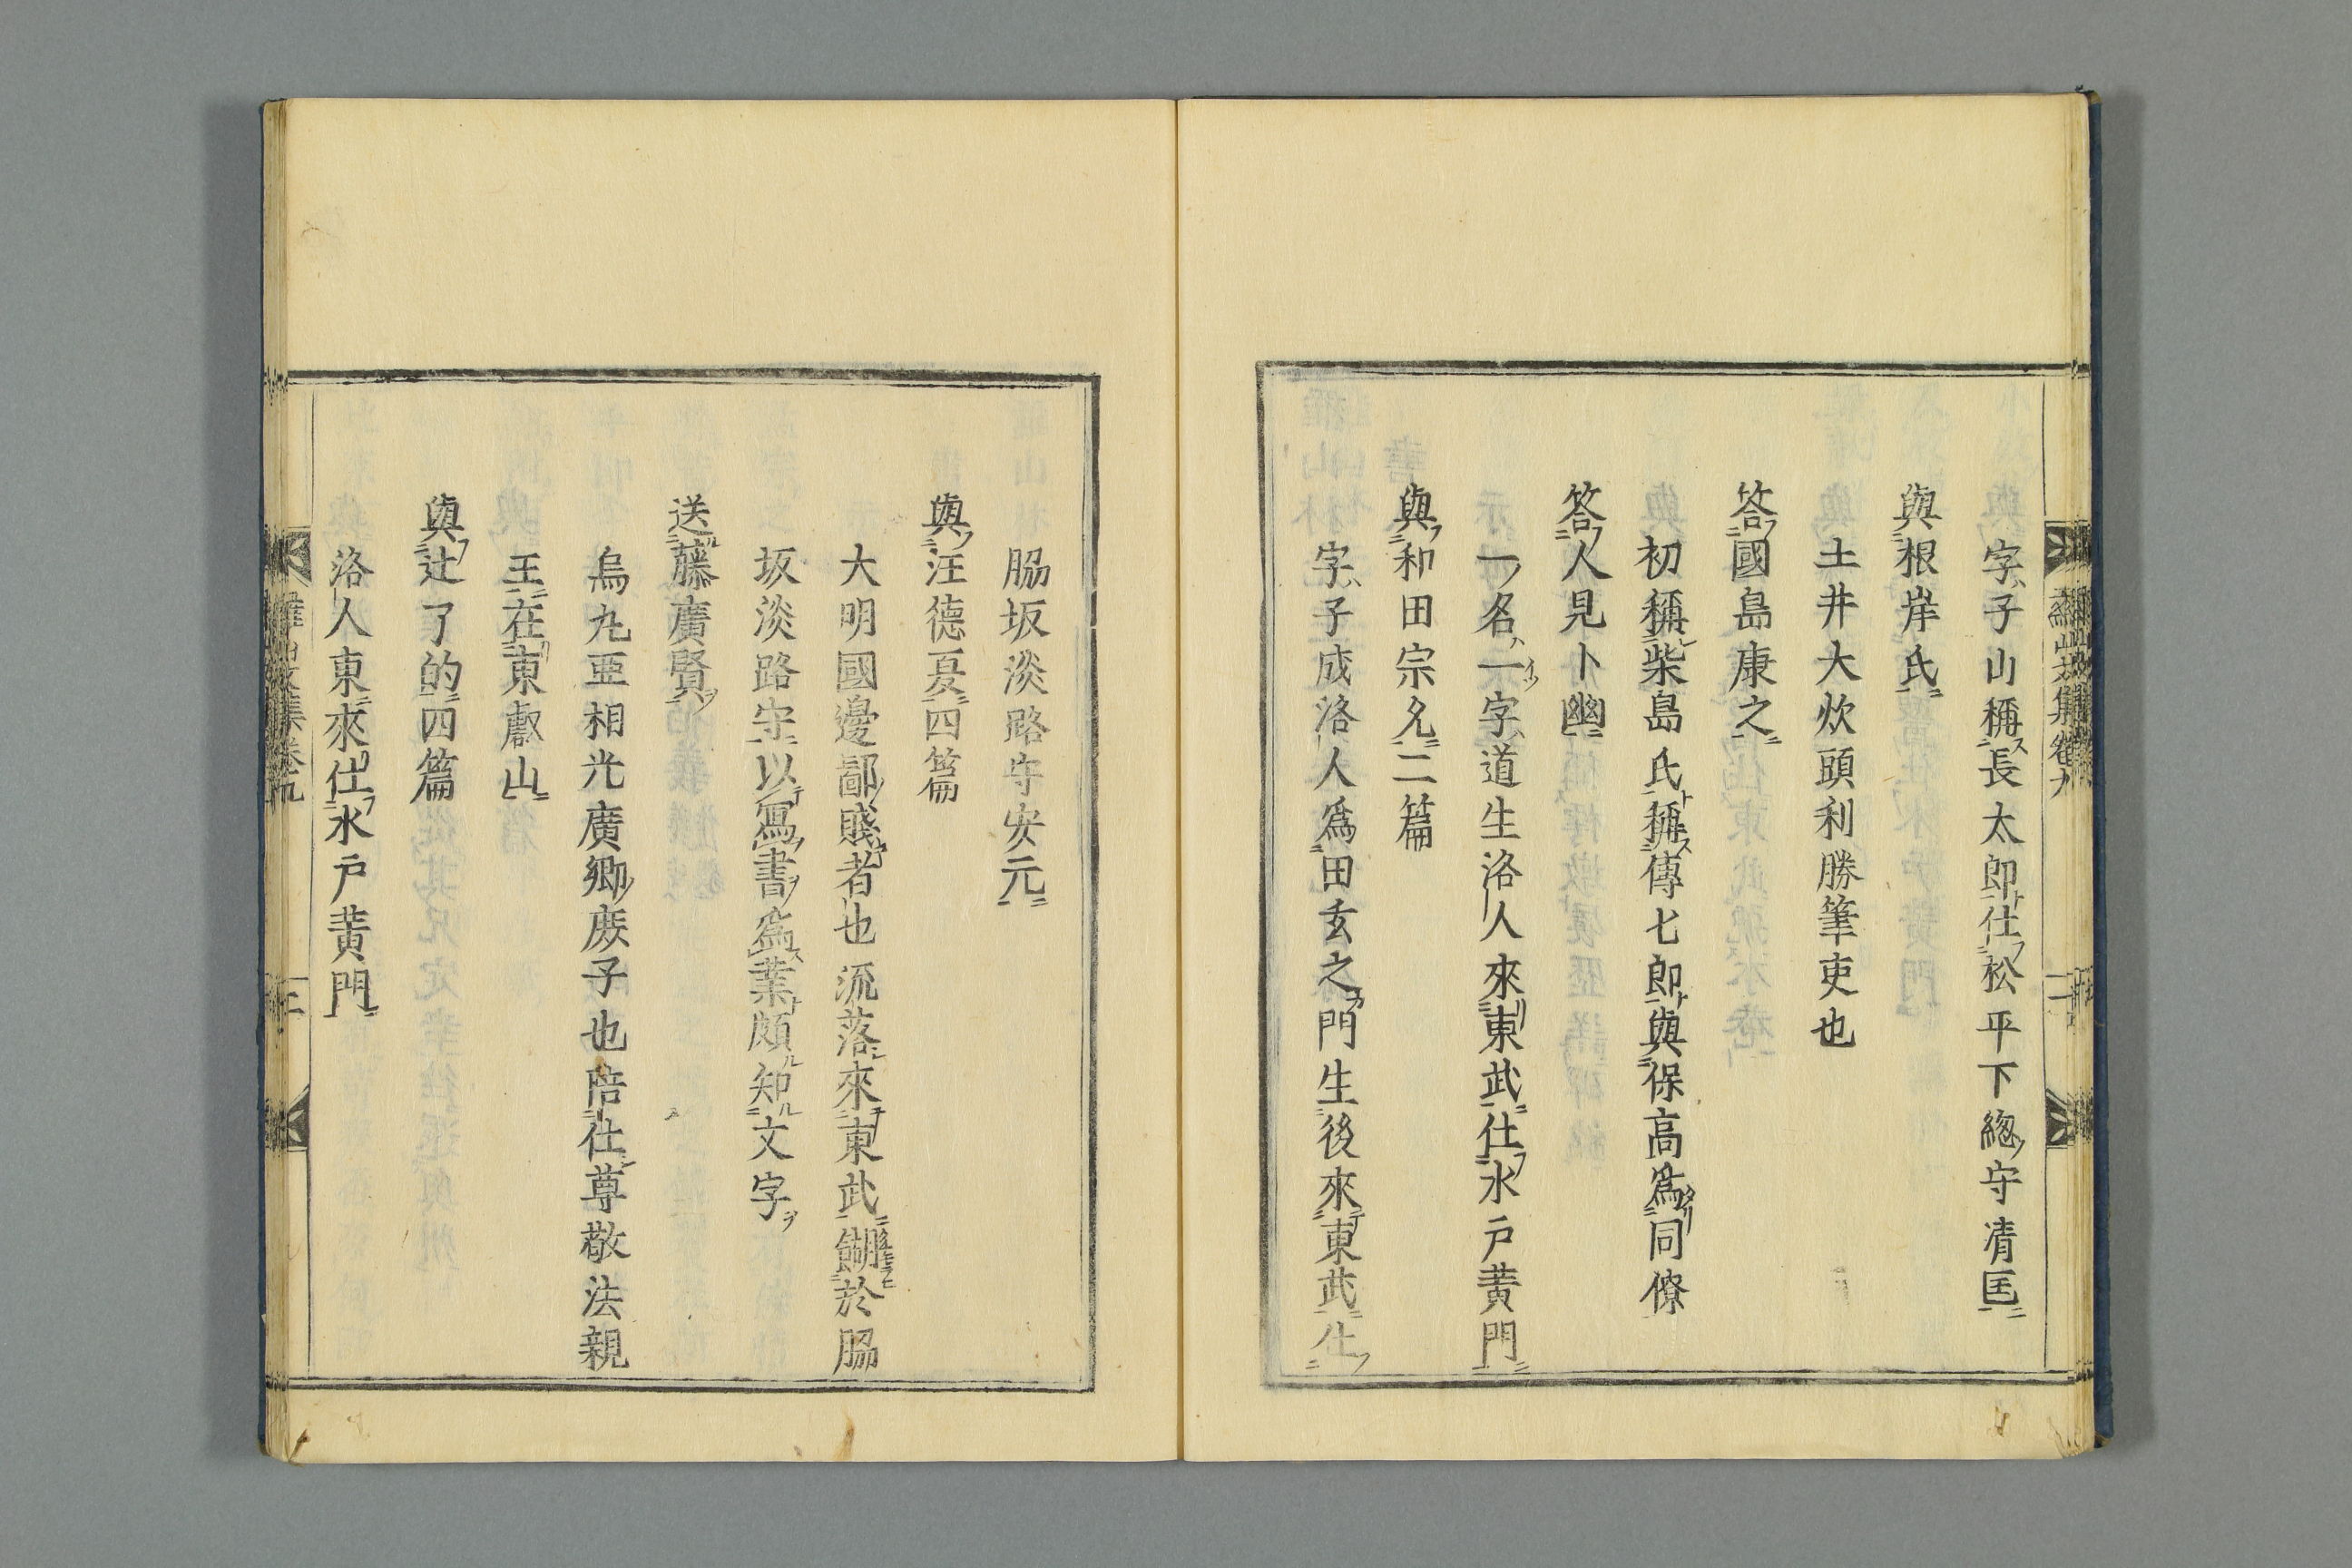 字子山稱長太郎仕松平下緫守清匡
與根岸氏
土井大炊頭利勝筆吏也
答國島康之
初稱柴島氏稱傳七郎與保高爲同僚
答人見卜幽
一名一字道生洛人來東武仕水戸黄門
與和田宗允二篇
字子成洛人爲田玄之門生後來東武仕
脇坂淡路守安元
與汪德夏四篇
大明國邊鄙賤者也流落來東武餬於脇
坂淡路守以寫書爲業頗知文字
送藤廣賢
烏丸亞相光廣卿庶子也陪仕尊敬法親
王在東叡山
與辻了的四篇
洛人東來仕水戸黄門
羅山文集卷九
三